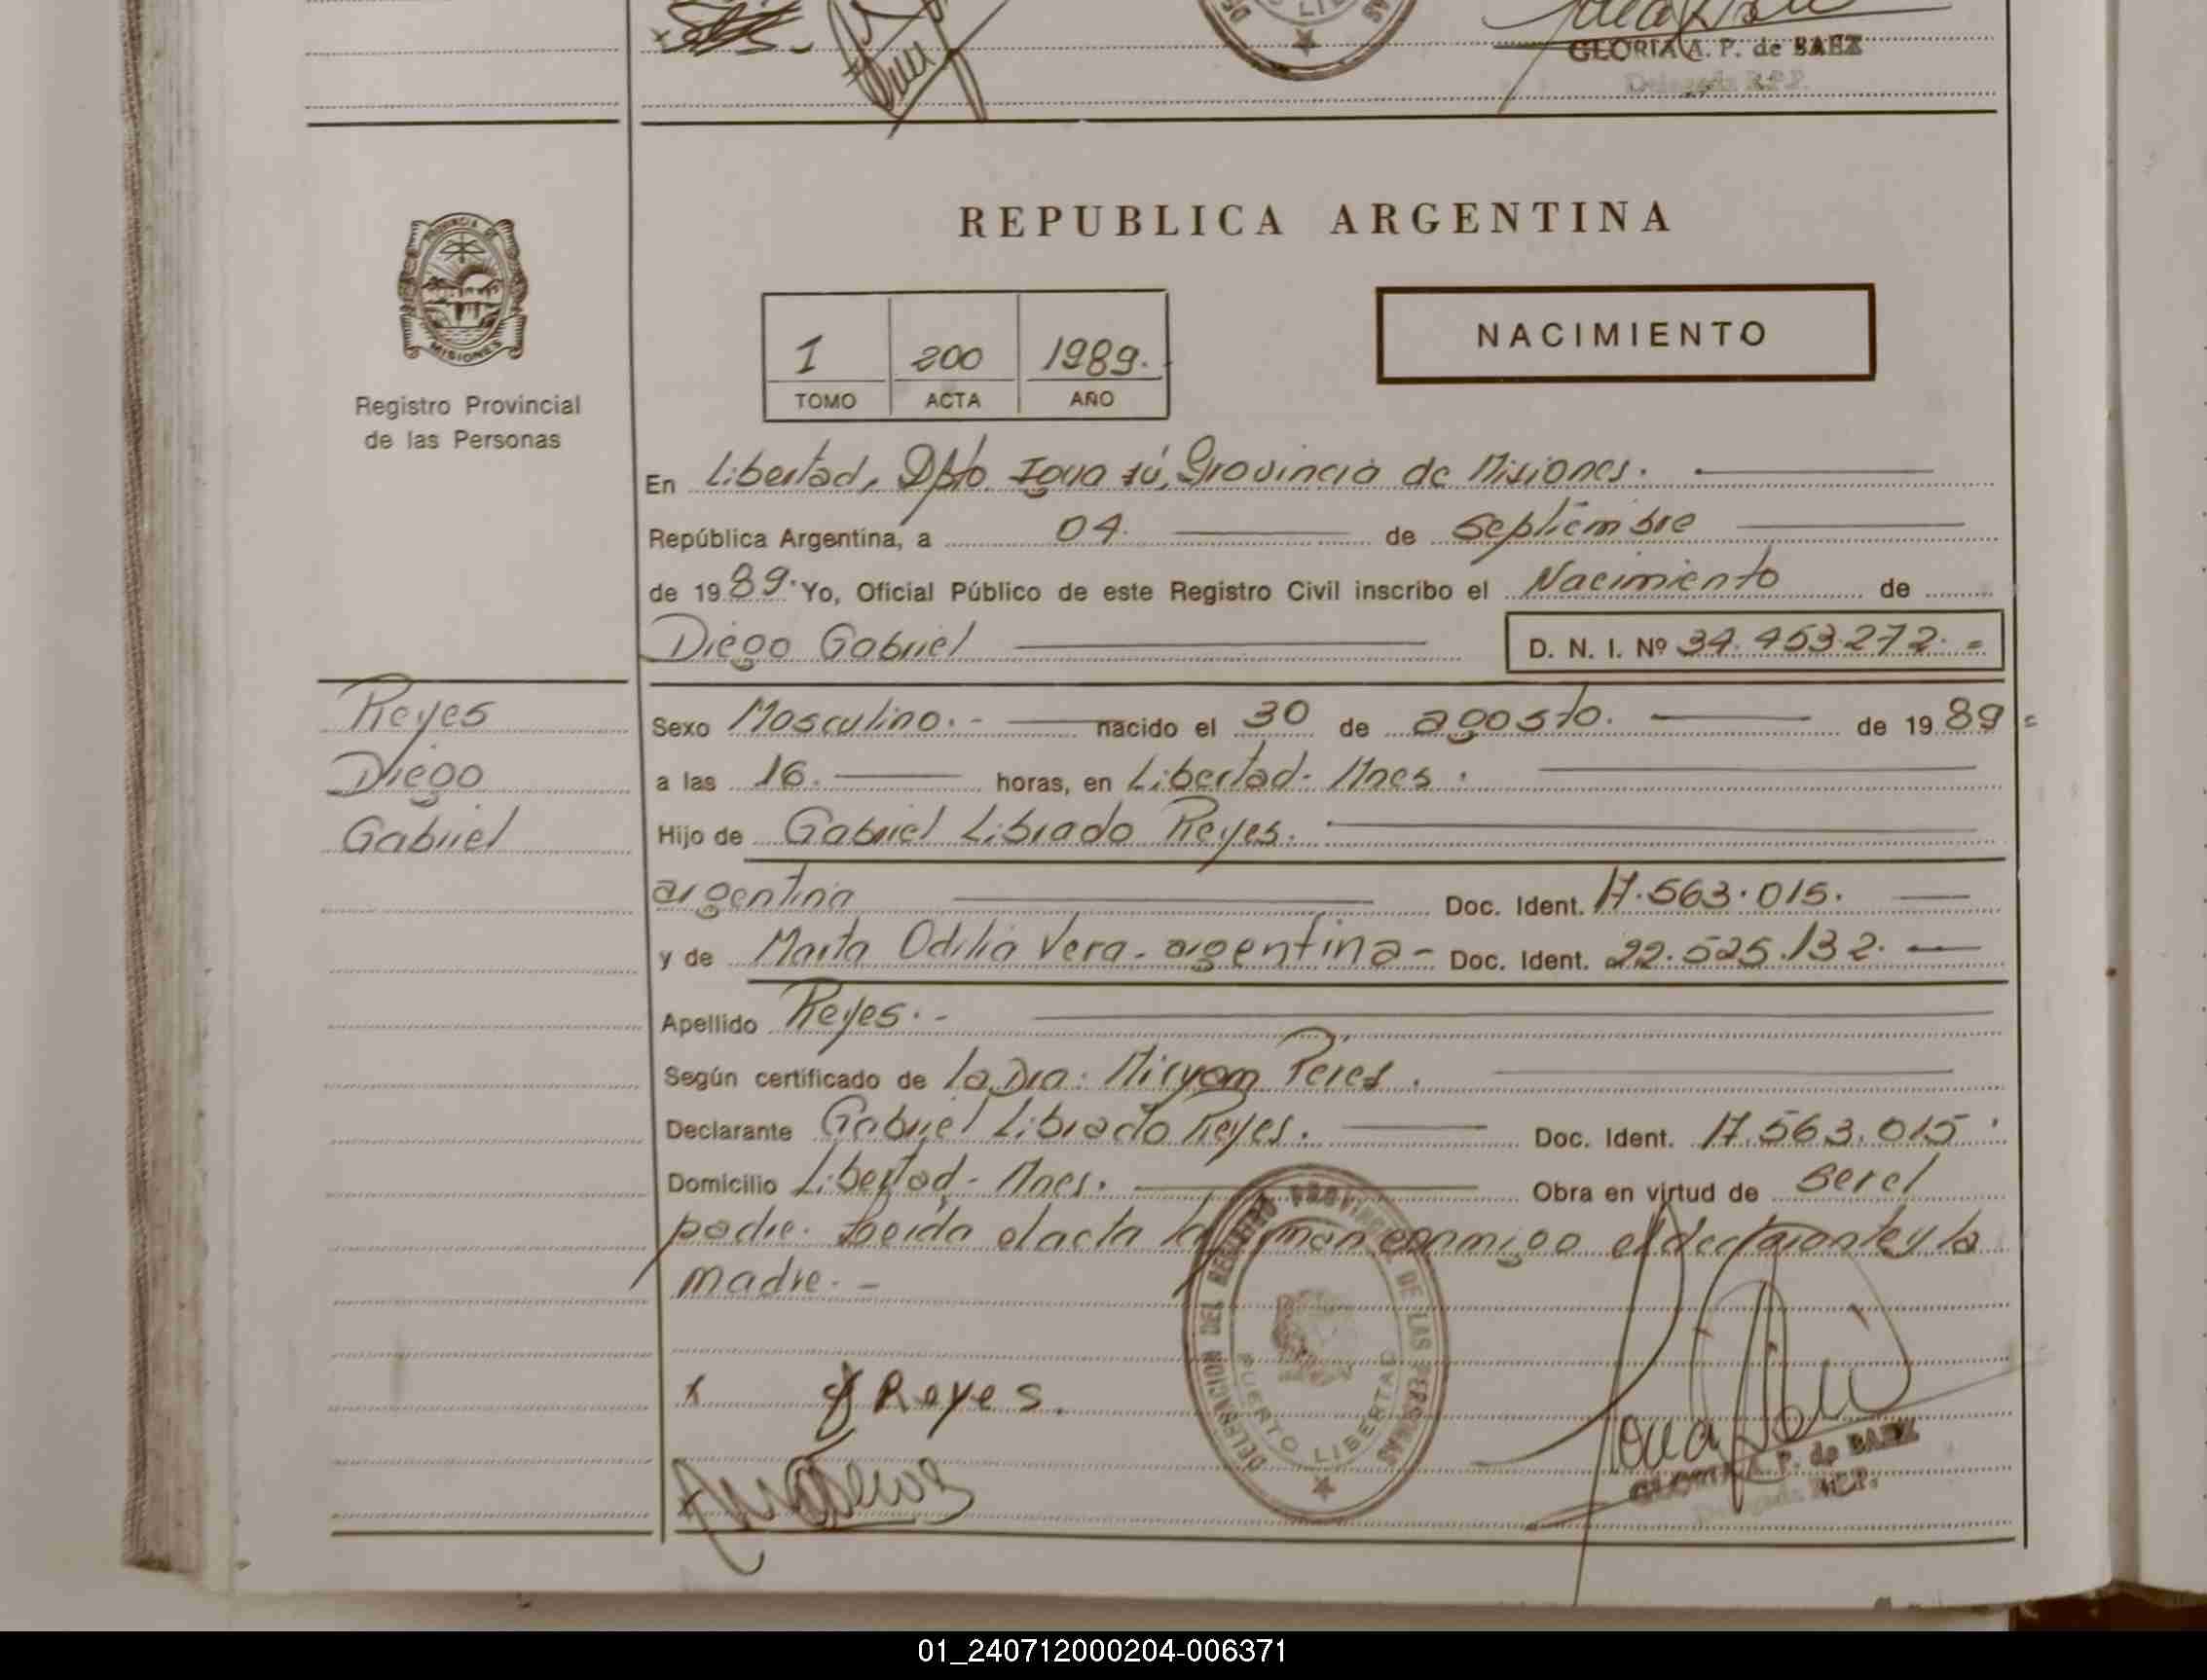 GLORIA A. P. de BAEZ
Delegada R.P.P.
PROVINCIA DE
MISIONES
Registro Provincial
de las Personas
REPUBLICA ARGENTINA
1 200 1989.
TOMO ACTA AÑO
NACIMIENTO
En Libertad, Dpto. Iguazú, Provincia de Misiones.
República Argentina, a 04. de septiembre
de 1989. Yo, Oficial Público de este Registro Civil inscribo el Nacimiento de
Diego Gabriel D. N. I. Nº 34.453.272.=
Reyes
Diego
Gabriel
Sexo Masculino.- nacido el 30 de agosto. de 1989=
a las 16. horas, en Libertad- Mnes.
Hijo de Gabriel Librado Reyes.
argentina Doc. Ident. 17.563.015.
y de Marta Odilia Vera- argentina- Doc. Ident. 22.525.132.
Apellido Reyes.-
Según certificado de la Dra. Miryam Peres.
Declarante Gabriel Librado Reyes. Doc. Ident. 17.563.015.
Domicilio Libertad- Mnes. Obra en virtud de ser el
padre. Leida el acta la firman conmigo el declarante y la
madre.-
x Reyes.
DELEGACION DEL REGISTRO PROVINCIAL DE LAS PERSONAS
PUERTO LIBERTAD
GLORIA A. P. de BAEZ
Delegada R.P.P.
01_240712000204-006371